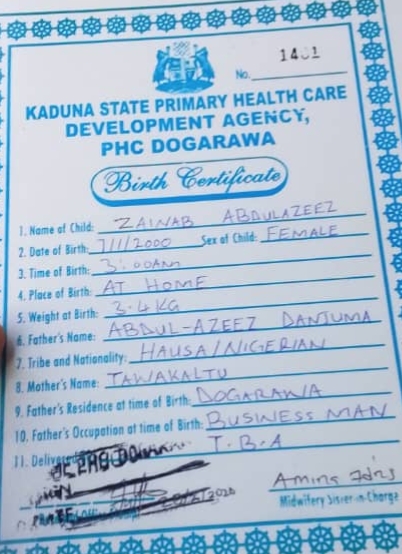 No. 1401
KADUNA STATE PRIMARY HEALTH CARE
DEVELOPMENT AGENCY,
PHC DOGARAWA
Birth Certificate
1. Name of Child: ZAINAB ABDULAZEEZ
2. Date of Birth: 7/1/2000 Sex of Child: FEMALE
3. Time of Birth: 3:00AM
4. Place of Birth: AT HOME
5. Weight at Birth: 3.4KG
6. Father's Name: ABDUL-AZEEZ DANJUMA
7. Tribe and Nationality: HAUSA/NIGERIAN
8. Mother's Name: TAWAKALTU
9. Father's Residence at time of Birth: DOGARAWA
10. Father's Occupation at time of Birth: BUSINESS MAN
11. T.B.A
Amina
Midwifery Sister-in-Charge